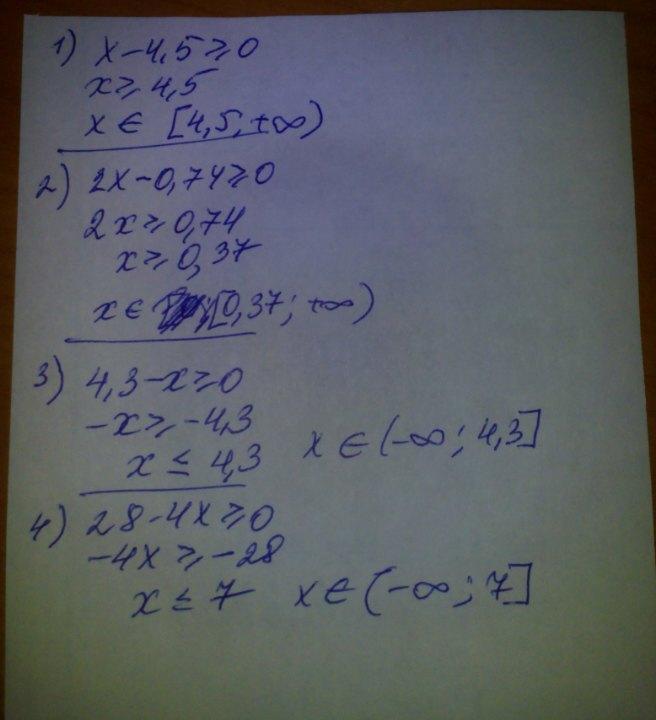 1) x-4,5≥0
x≥4,5
x∈ [4,5,+∞)
2) 2x-0,74≥0
2x≥0,74
x≥0,37
x∈ [0,37; +∞)
3) 4,3-x≥0
-x≥-4,3
x≤4,3 x∈(-∞; 4,3]
4) 28-4x≥0
-4x≥-28
x≤7 x∈(-∞; 7]